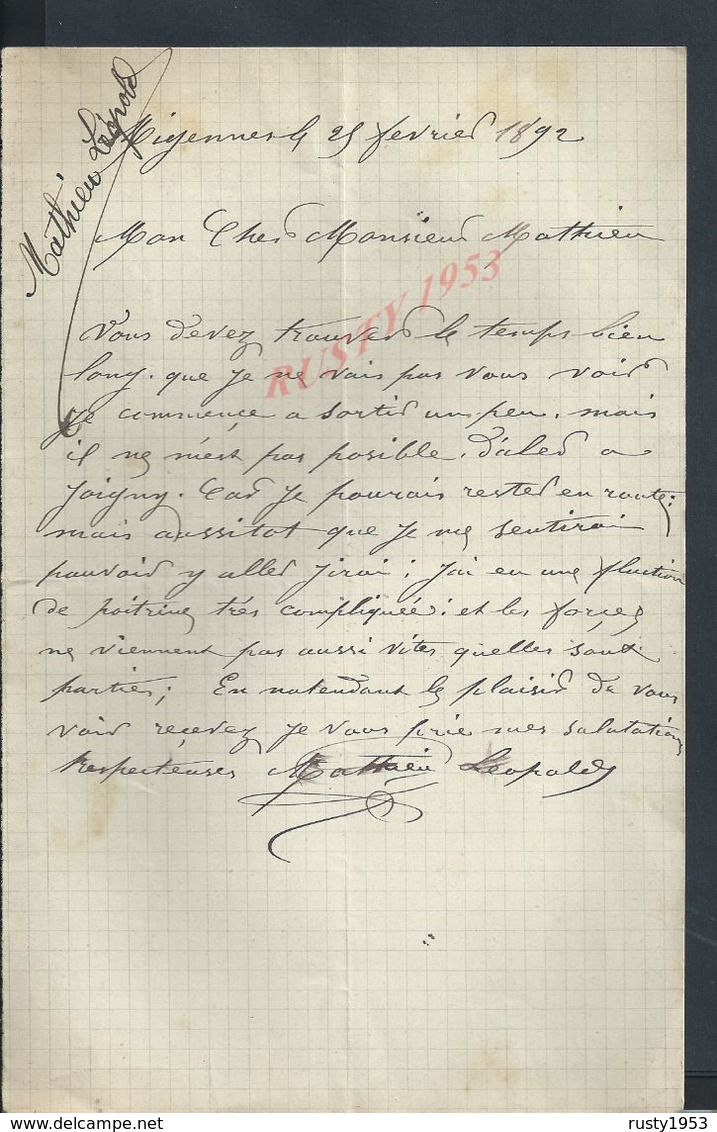 Mathieu Léopold
Migennes le 25 fevrier 1892
Mon Cher Monsieur Mathieu
Vous devez trouver le temps bien
long. que je ne vais pas vous voir
je commence a sortir un peu. mais
il ne m'est pas posible. d'aler a
Joigny. Car je pourais rester en route;
mais aussitot que je me sentirai
pouvoir y aller j'irai; j'ai eu une fluction
de poitrine très compliquée: et les forçes
ne viennent pas aussi vites quelles sont
parties; En natendant le plaisir de vous
voir reçevez je vous prie mes salutations
respecteuses Mathieu Leopold
RUSTY 1953
www.delcampe.net
rusty1953